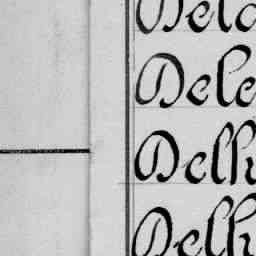 Dela
Dele
Delh
Delh